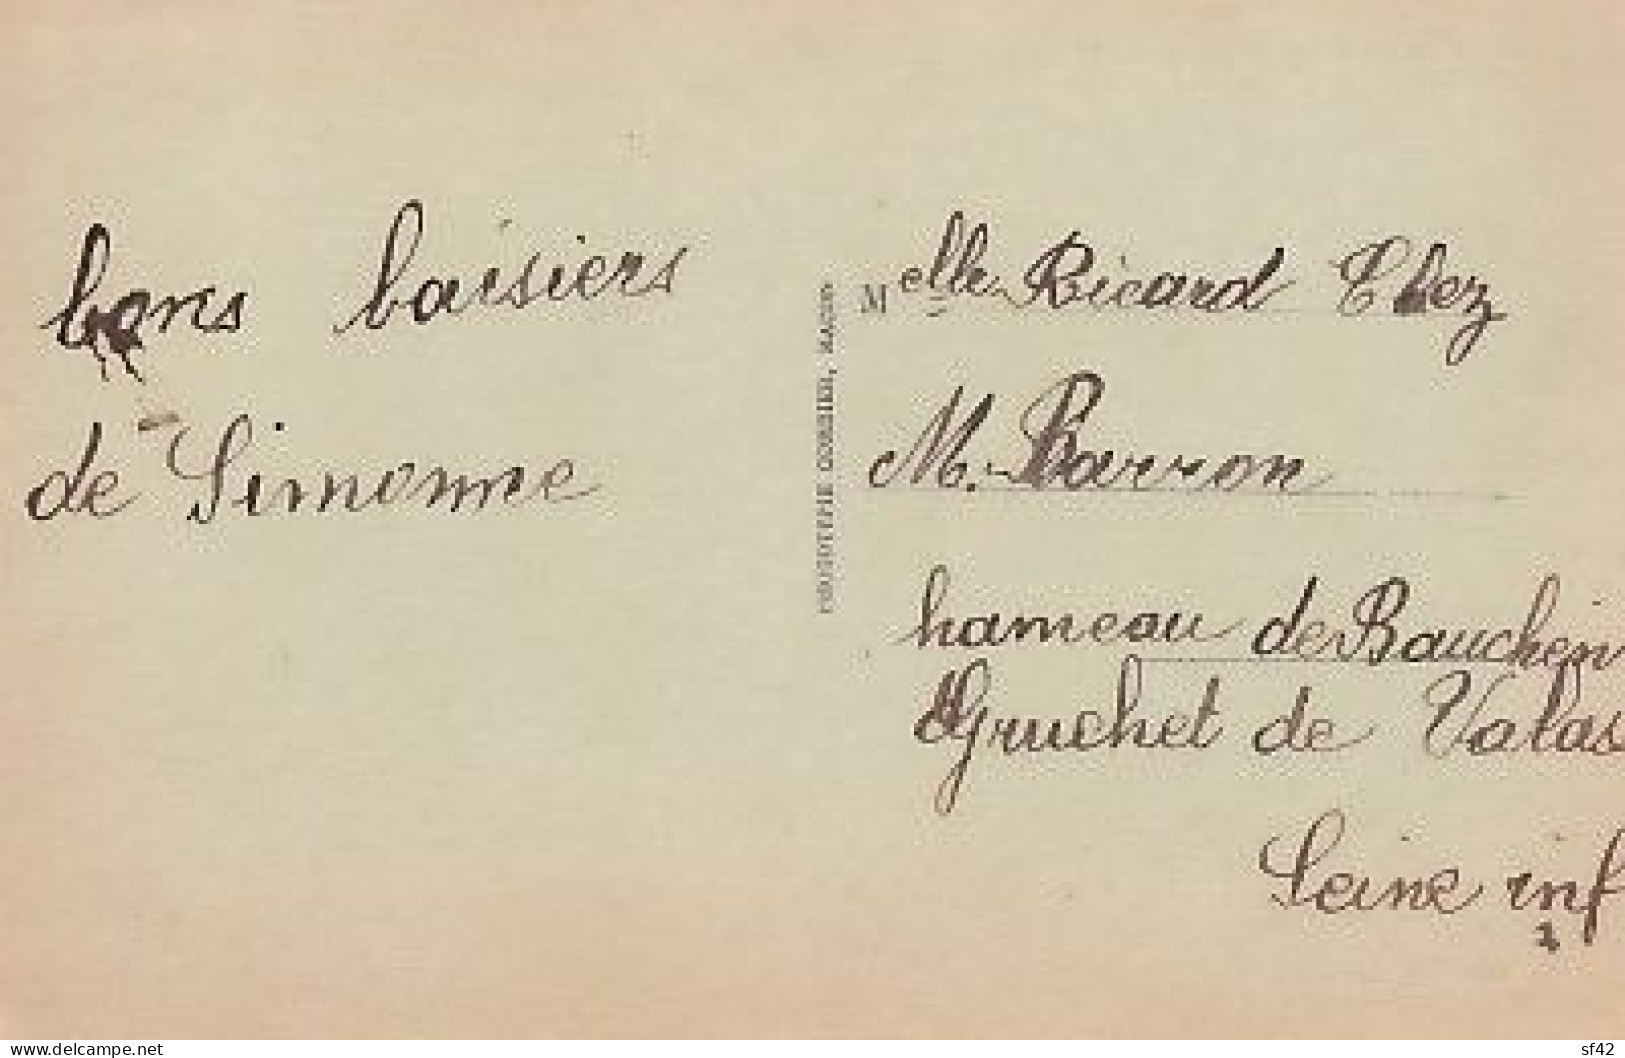 bons baisiers
de Simonne
PHOTOTYPIE COMBIER, MACON
Melle Ricard Chez
M. Barron
hameau de Bauchen
Gruchet de Valas
Seine inf
www.delcampe.net
sf42